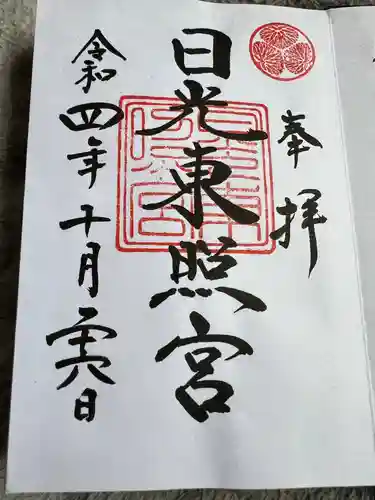 奉拝
日光東照宮
令和四年十月二十六日